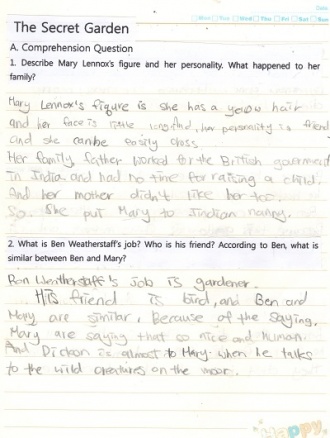 Date
The Secret Garden
A. Comprehension Question
1. Describe Mary Lennox's figure and her personality. What happened to her
family?
Mary Lennox's figure is she has a yellow hair
and her face is little long. And, her personality is friend
and she canbe easily cross.
Her family, father worked for the British goverment
in India and had no time for raising a child.
And her mother didn't like her too.
So, She put Mary to Indian nanny.
2. What is Ben Weatherstaff's job? Who is his friend? According to Ben, what is
similar between Ben and Mary?
Ben Weatherstaff's job is gardener.
His friend is bird, and Ben and
Mary are similar, Because of the saying,
Mary are saying that so nice and human.
And Dickon is almost to Mary. when he talks
to the wild creatures on the moor.
Happy